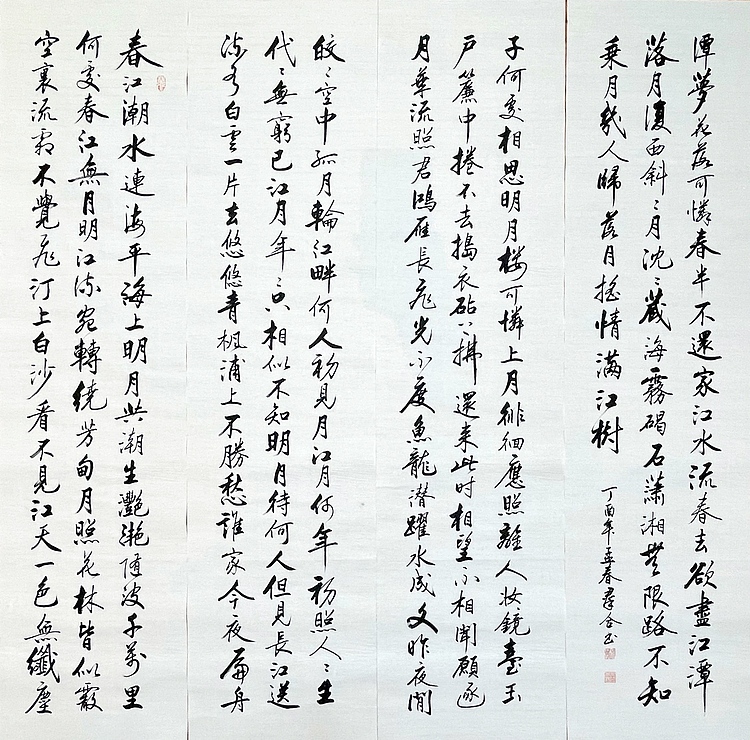 春江潮水連海平海上明月共潮生灩灩隨波千萬里
何處春江無月明江流宛轉繞芳甸月照花林皆似霰
空裏流霜不覺飛汀上白沙看不見江天一色無纖塵
皎〻空中孤月輪江畔何人初見月江月何年初照人〻生
代〻無窮已江月年〻只相似不知明月待何人但見長江送
流水白雲一片去悠悠青楓浦上不勝愁誰家今夜扁舟
子何處相思明月樓可憐上月徘徊應照離人妝鏡臺玉
戶簾中捲不去搗衣砧上拂還来此时相望不相聞願逐
月華流照君鴻雁長飛光不度魚龍潛躍水成文昨夜閒
潭夢花落可憐春半不還家江水流春去欲盡江潭
落月復西斜〻月沈〻藏海霧碣石瀟湘無限路不知
乘月幾人歸落月搖情滿江樹
丁酉年孟春